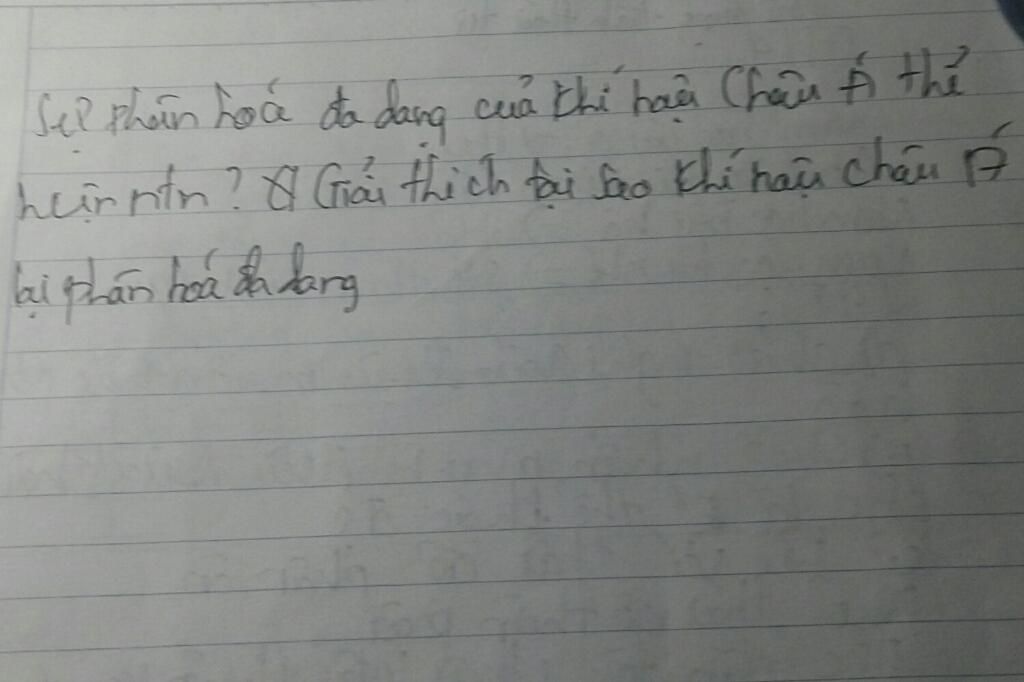 Sự phân hoá đa dạng của khí hậu Châu Á thể
hiện ntn? Giải thích tại sao khí hậu châu Á
lại phân hoá đa dang